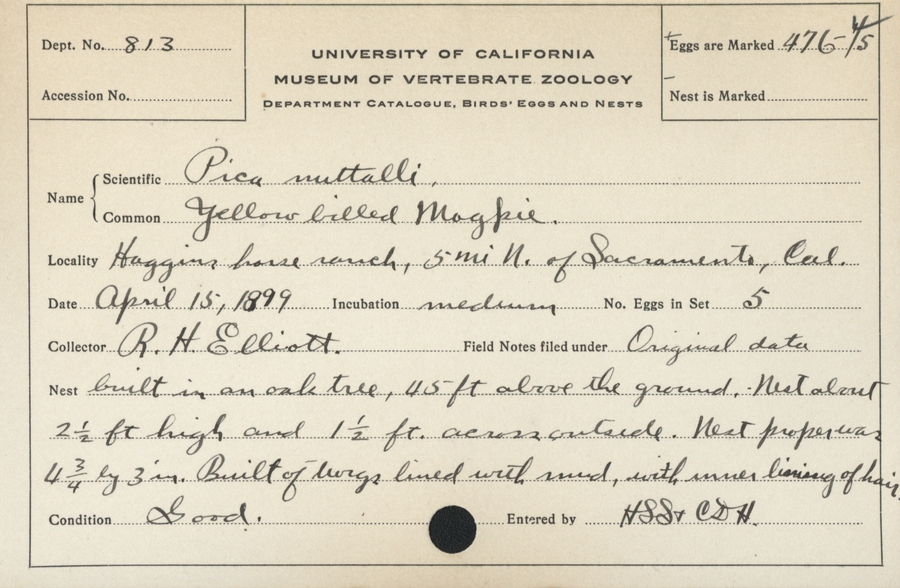 Dept. No. 813
Accession No.
UNIVERSITY OF CALIFORNIA
MUSEUM OF VERTEBRATE ZOOLOGY
DEPARTMENT CATALOGUE, BIRDS' EGGS AND NESTS
Eggs are Marked 476-4/5
Nest is Marked
Name
Scientific Pica nuttalli.
Common Yellow billed Magpie.
Locality Haggins horse ranch, 5 mi N. of Sacramento, Cal.
Date April 15, 1899 Incubation medium No. Eggs in Set 5
Collector R. H. Elliott. Field Notes filed under Original data
Nest built in an oak tree, 45 ft above the ground. Nest about
2 1/2 ft high and 1 1/2 ft. across outside. Nest proper was
4 3/4 by 3 in. Built of twigs lined with mud, with inner lining of hair.
Condition Good. Entered by HSS & CDH.